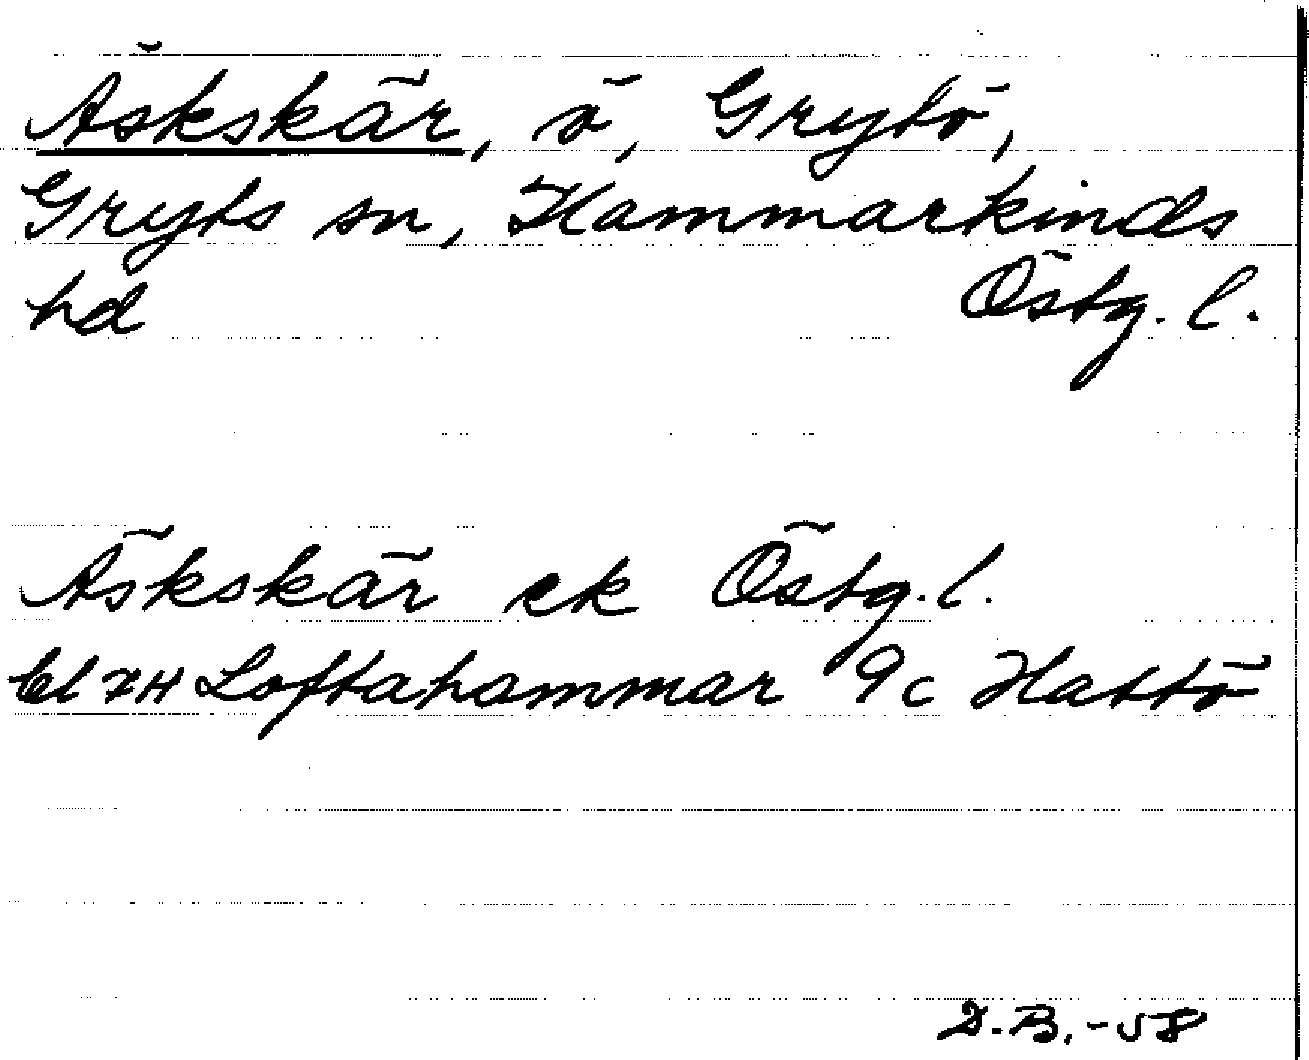 Äskskär, ö, Grytö,
Gryts sn, Hammarkinds
hd Östg. l.
Äskskär ek Östg. l.
bl 7H Loftahammar 9c Hattö
D.B.-58